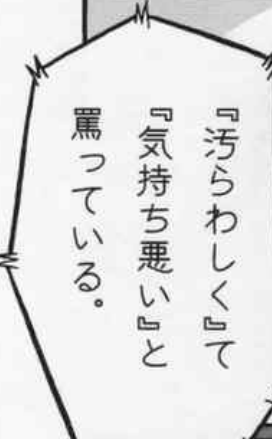 『汚らわしく』て
『気持ち悪い』と
罵っている。